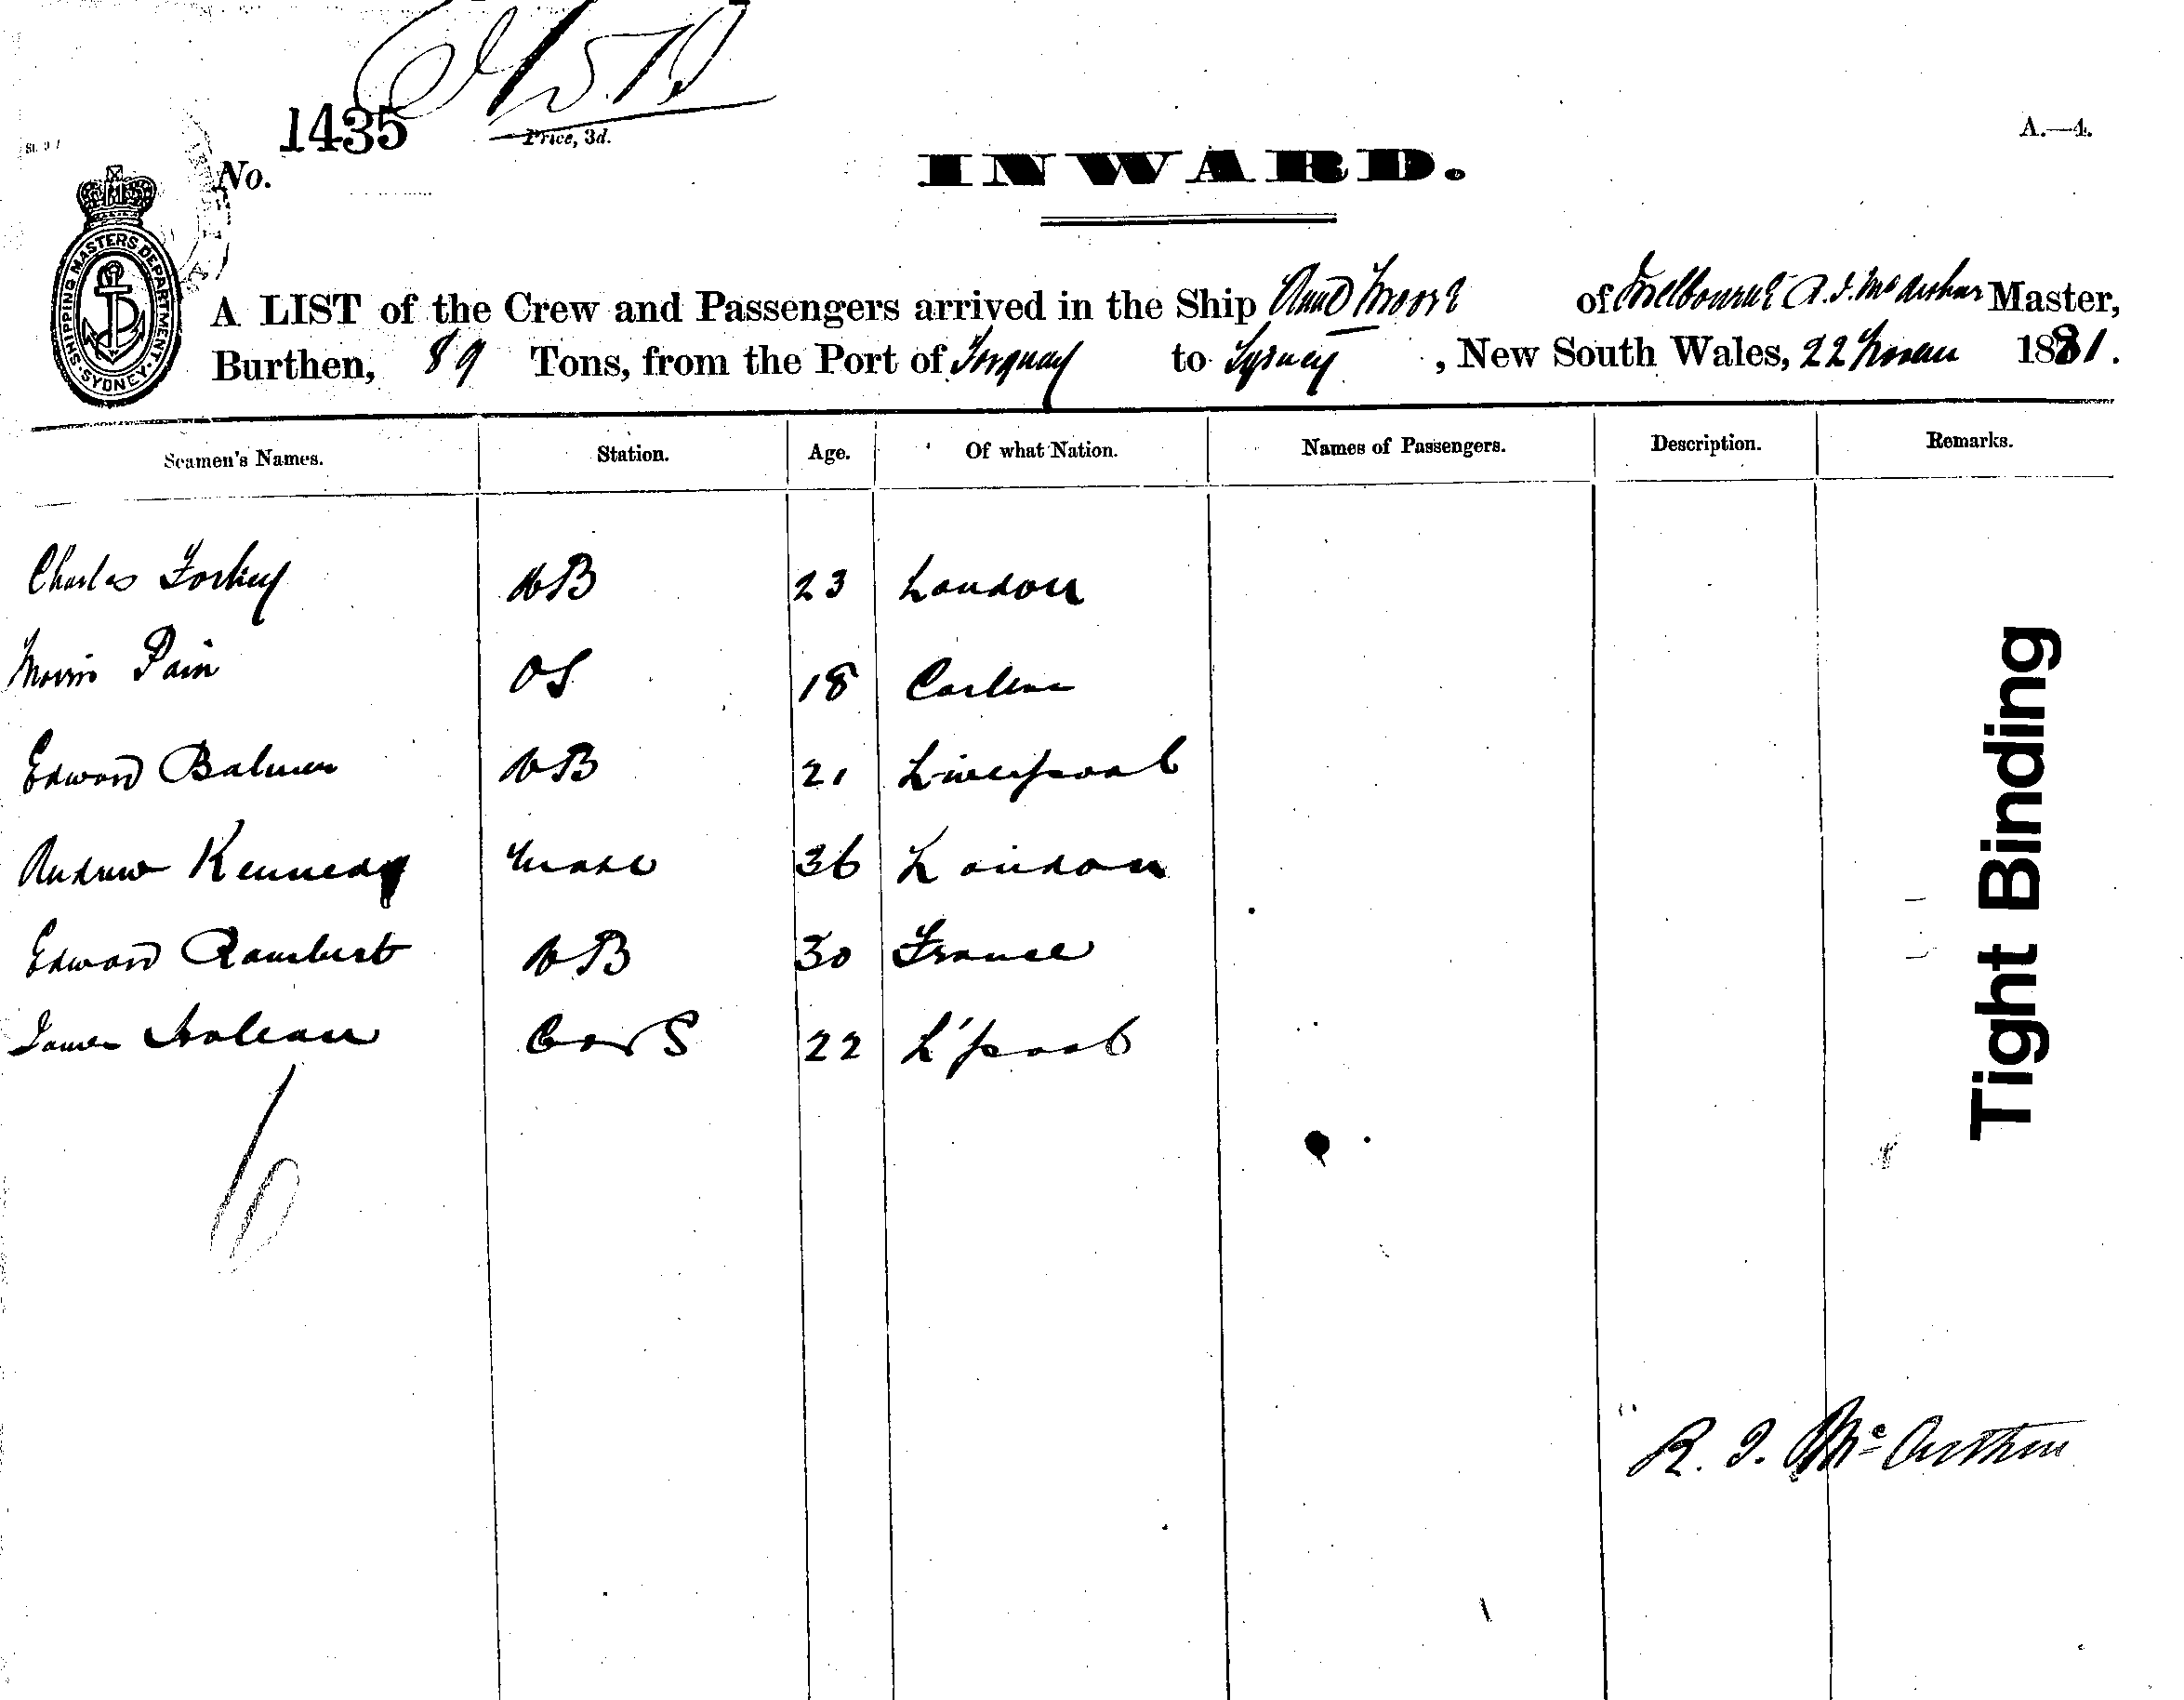 1435
Price, 3d.
A.—4.
No.
INWARD.
SHIPPING MASTERS DEPARTMENT. SYDNEY.
A LIST of the Crew and Passengers arrived in the Ship of Melbourne R. J. McArthur Master,
Burthen, 89 Tons, from the Port of Torquay to Sydney, New South Wales, 22 1881.
Seamen's Names. Station. Age. Of what Nation. Names of Passengers. Description. Remarks.
Charles AB 23 London
Morris Pain OS 18
Edward Balmer AB 21 Liverpool
Andrew Kennedy Mate 36 London
Edward Rambert AB 30 France
James C & S 22 L'pool
6
R. J. McArthur
Tight Binding